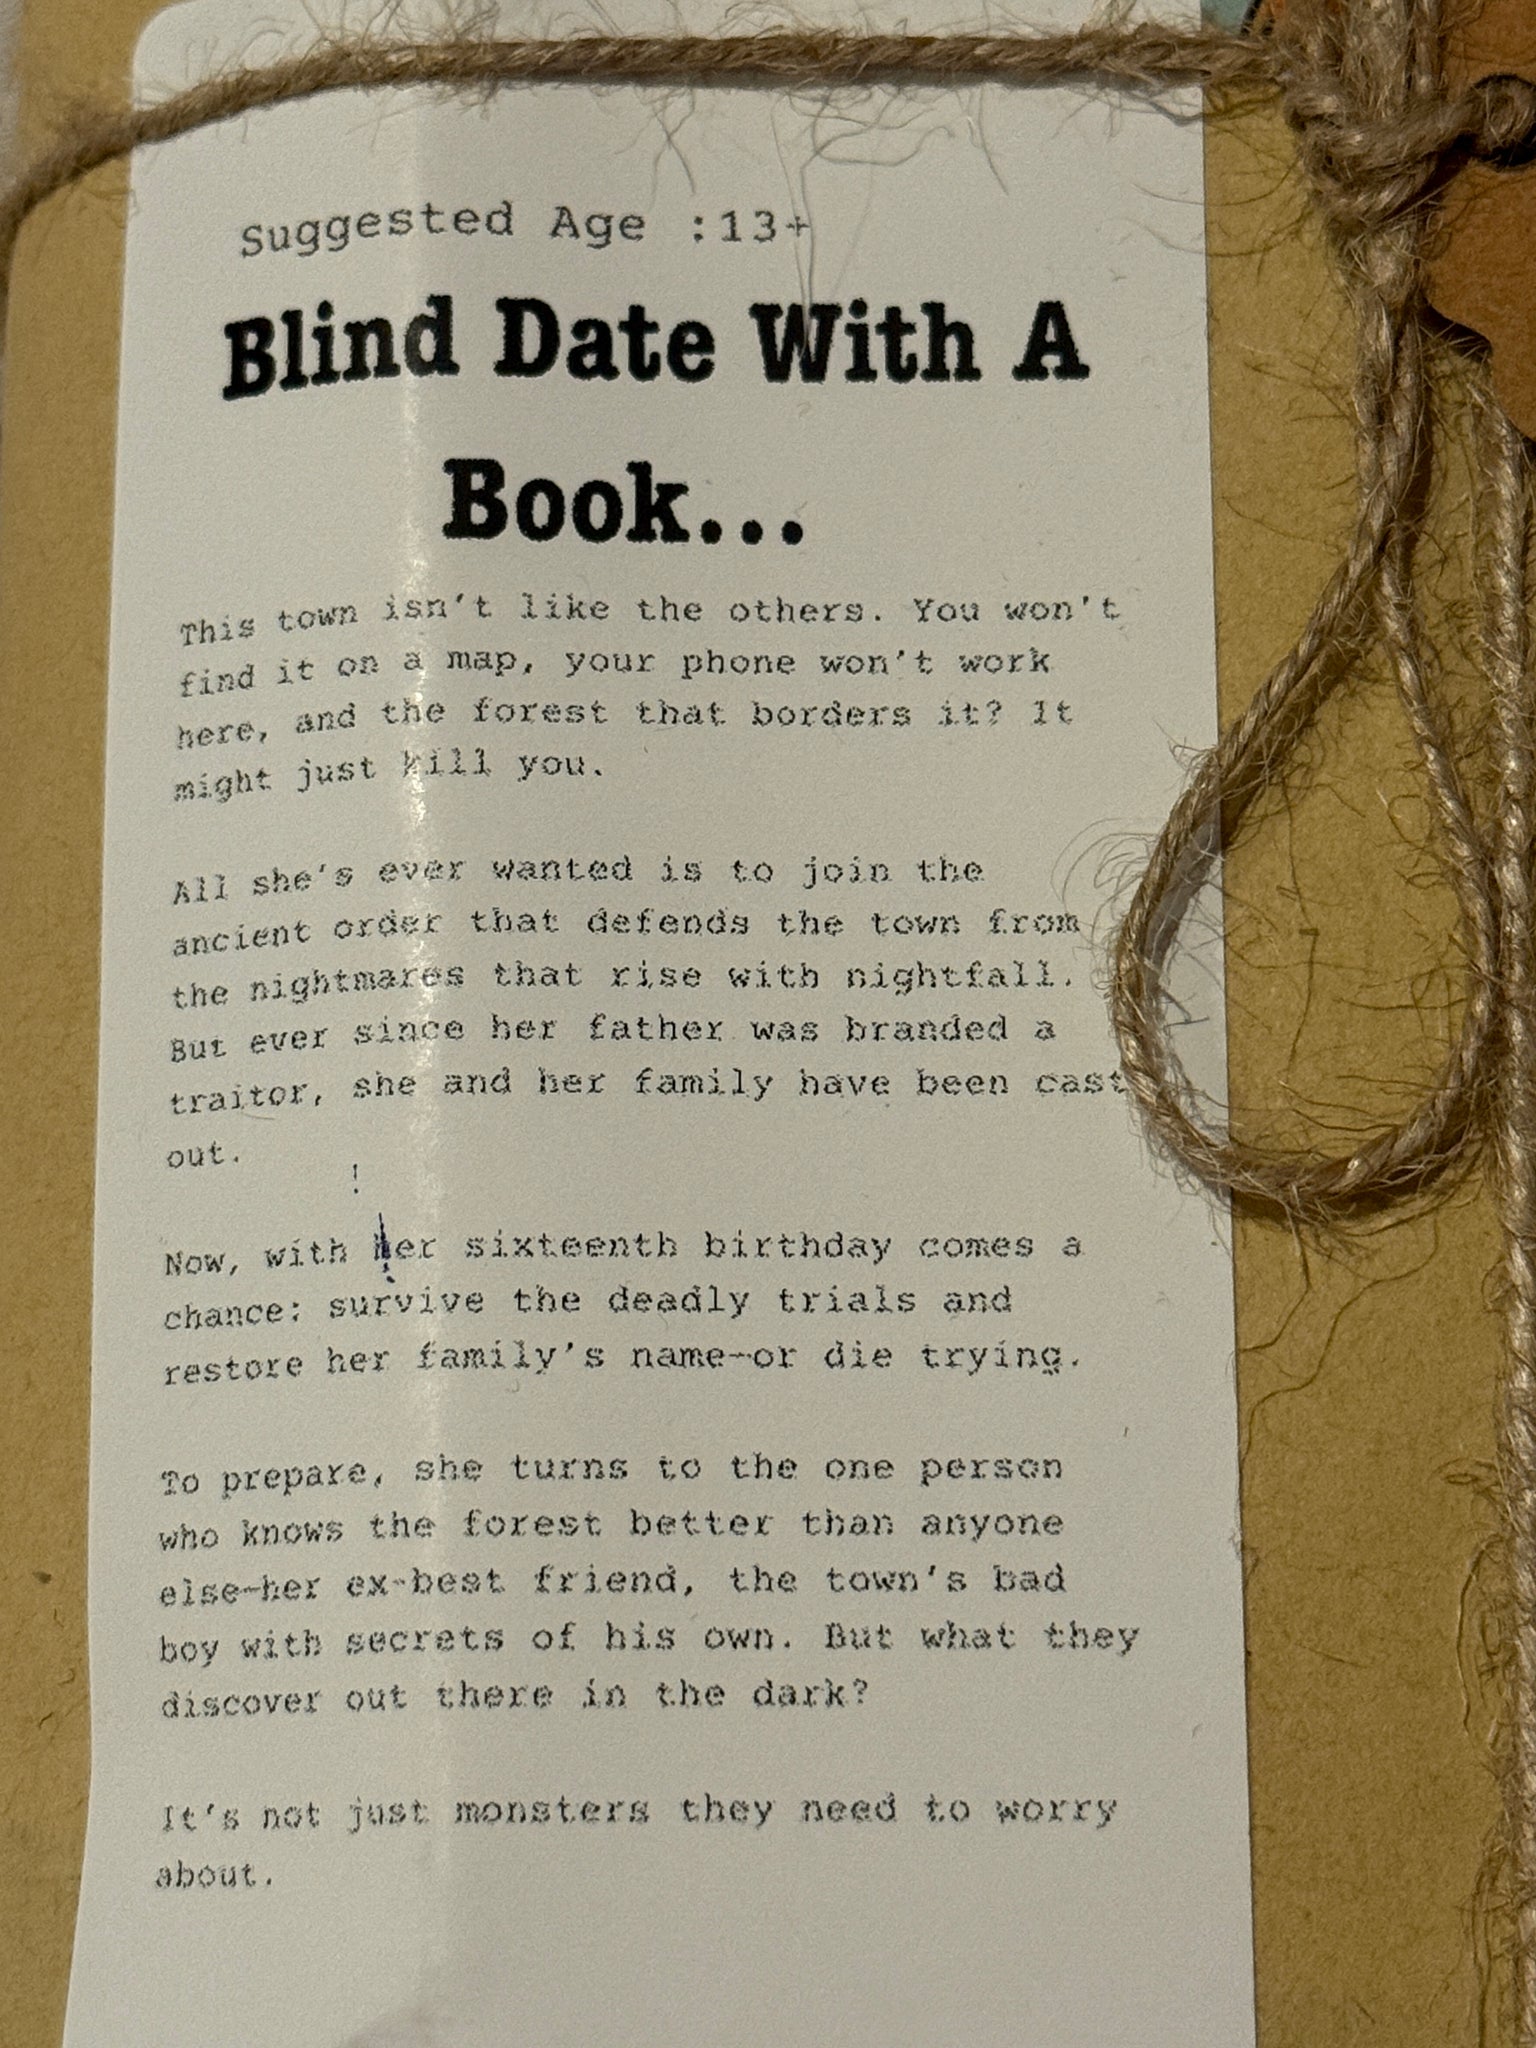 Suggested Age :13+
Blind Date With A
Book...
This town isn't like the others. You won't
find it on a map, your phone won't work
here, and the forest that borders it? It
might just kill you.
All she's ever wanted is to join the
ancient order that defends the town from
the nightmares that rise with nightfall.
But ever since her father was branded a
traitor, she and her family have been cast
out.
Now, with her sixteenth birthday comes a
chance: survive the deadly trials and
restore her family's name—or die trying.
To prepare, she turns to the one person
who knows the forest better than anyone
else—her ex-best friend, the town's bad
boy with secrets of his own. But what they
discover out there in the dark?
It's not just monsters they need to worry
about.